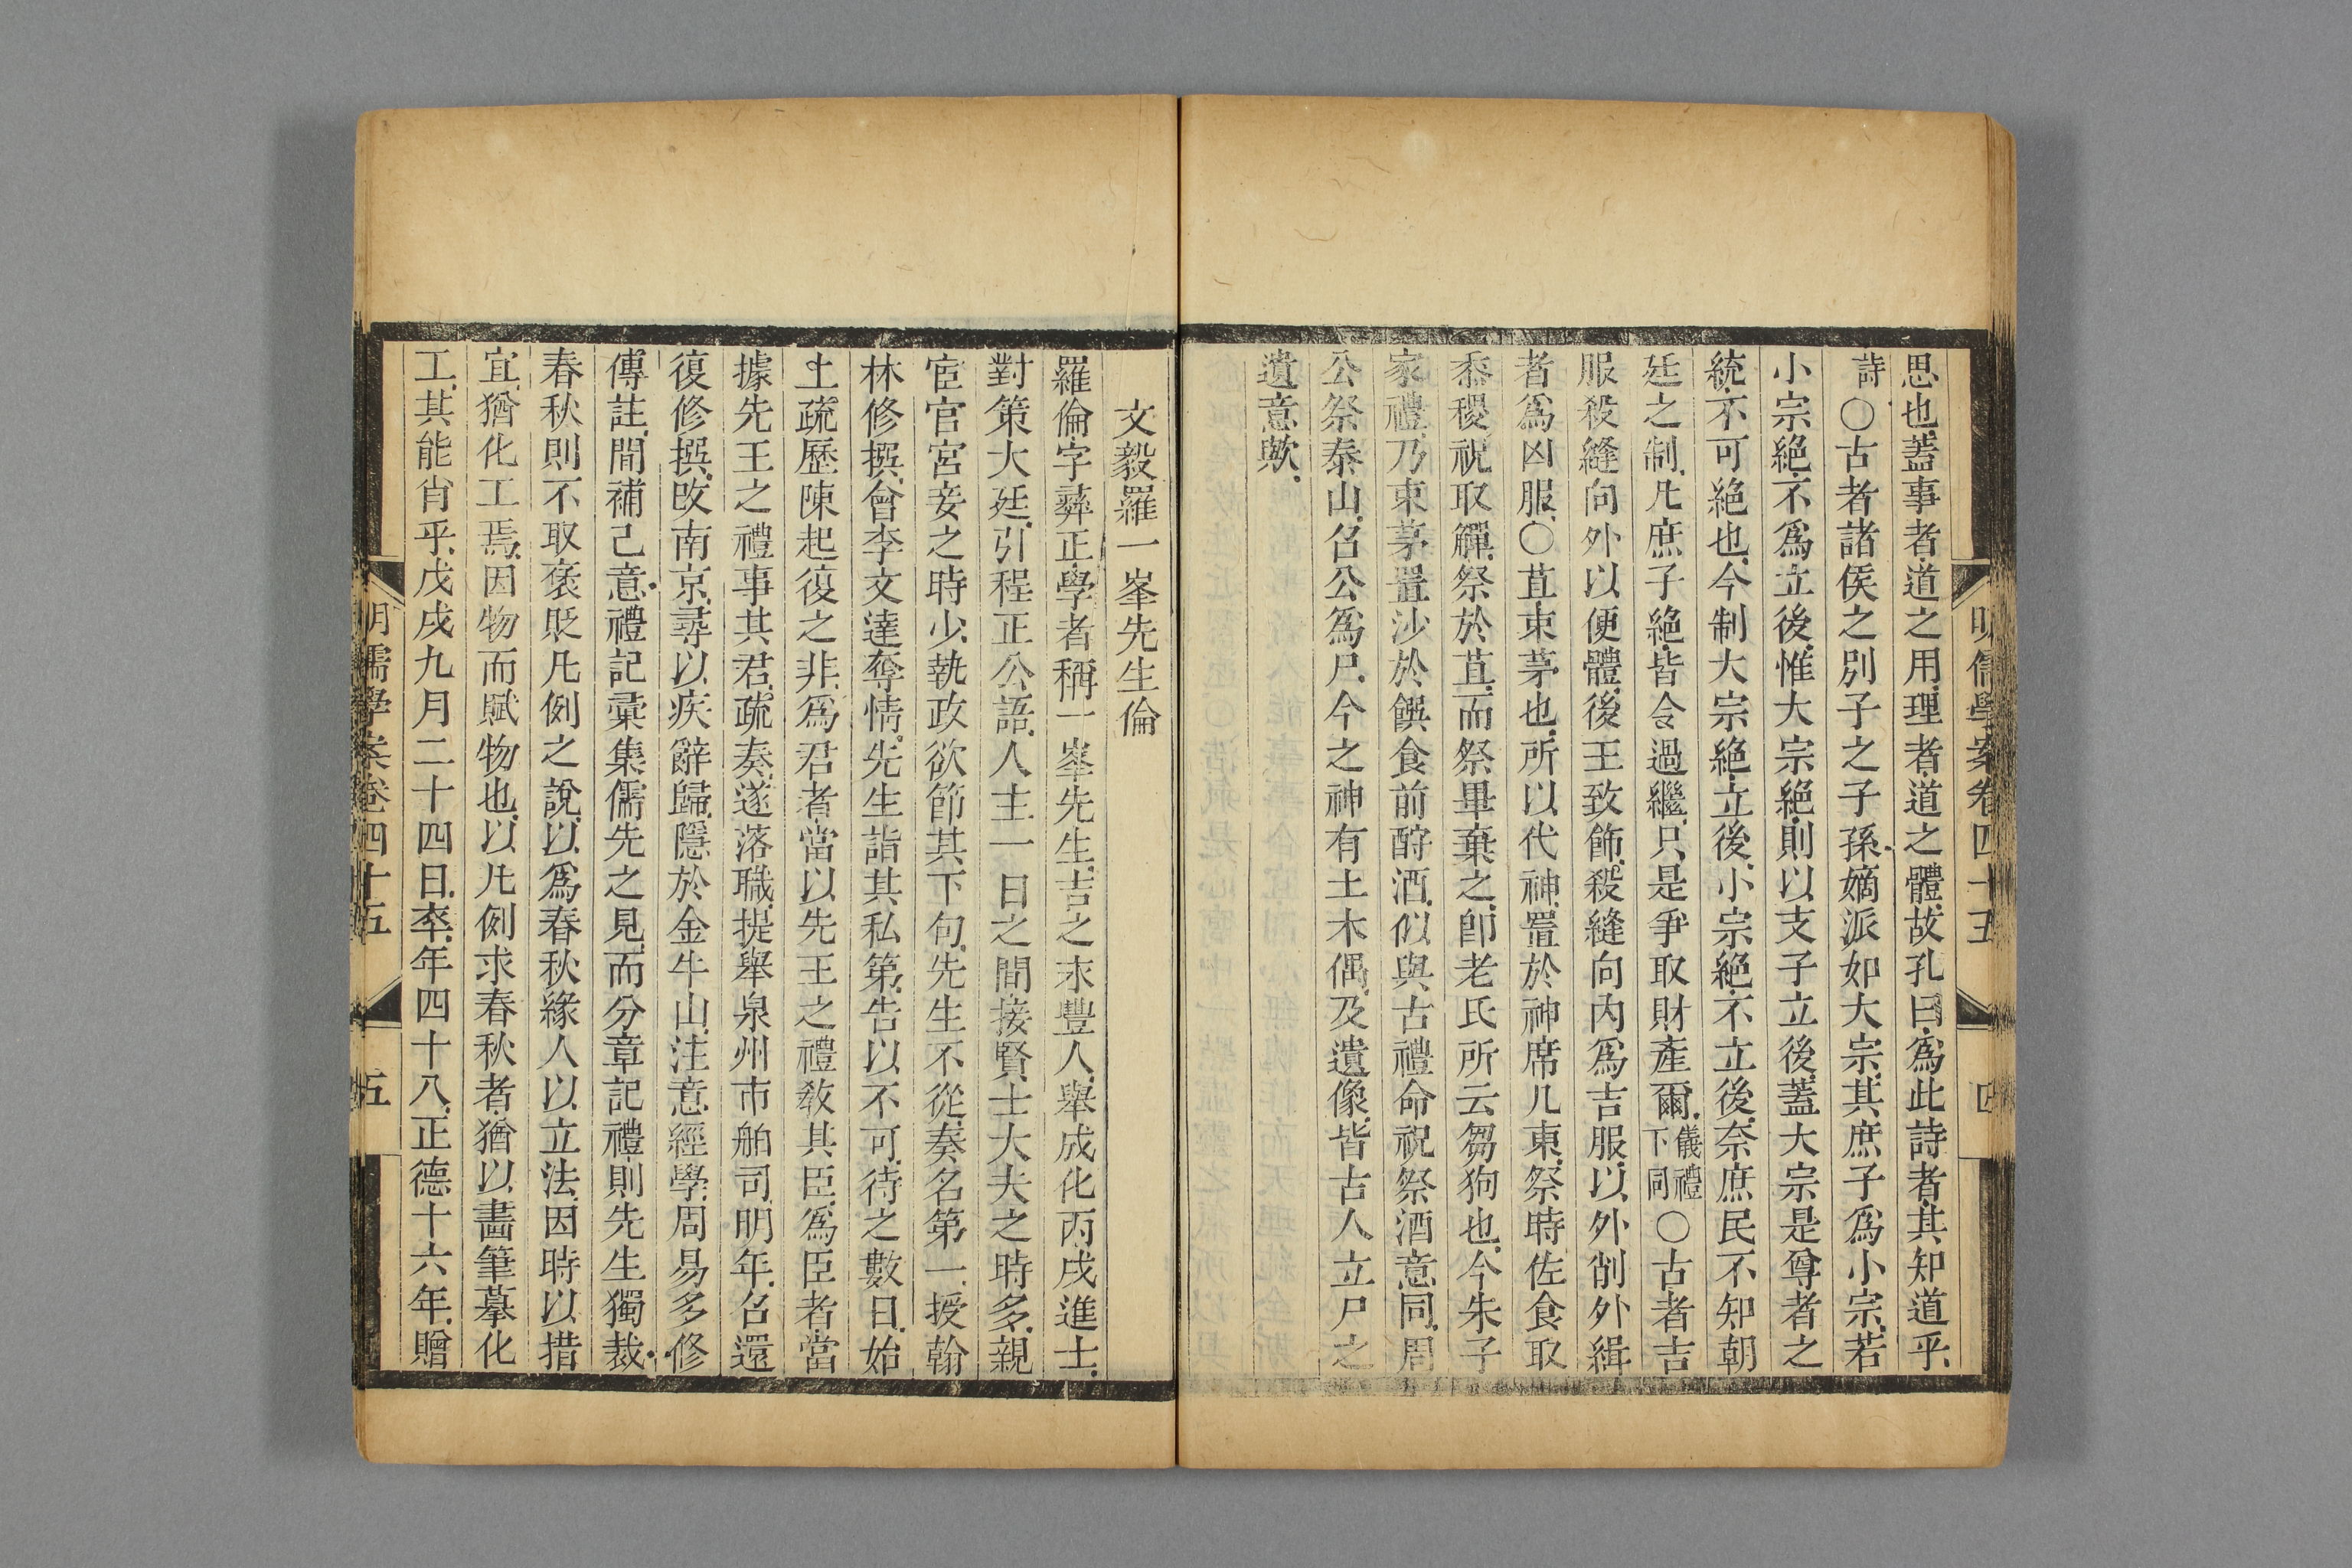 明儒學案卷四十五
四
思也蓋事者道之用理者道之體故孔曰爲此詩者其知道乎
詩○古者諸侯之別子之子孫嫡派如大宗其庶子爲小宗若
小宗絶不爲立後惟大宗絶則以支子立後蓋大宗是尊者之
統不可絶也今制大宗絶立後小宗絶不立後奈庶民不知朝
廷之制凡庶子絶皆令過繼只是爭取財產爾儀禮下同○古者吉
服殺縫向外以便體後王致飾殺縫向內爲吉服以外削外緝
者爲凶服○苴束茅也所以代神置於神席几東祭時佐食取
黍稷祝取觶祭於苴而祭畢棄之卽老氏所云芻狗也今朱子
家禮乃束茅置沙於饌食前酹酒似與古禮命祝祭酒意同周
公祭泰山召公爲尸今之神有土木偶及遺像皆古人立尸之
遺意歟
文毅羅一峯先生倫
羅倫字彝正學者稱一峯先生吉之永豐人舉成化丙戌進士
對策大廷引程正公語人主一日之間接賢士大夫之時多親
宦官宮妾之時少執政欲節其下句先生不從奏名第一授翰
林修撰會李文達奪情先生詣其私第告以不可待之數日始
上疏歷陳起復之非爲君者當以先王之禮敎其臣爲臣者當
據先王之禮事其君疏奏遂落職提舉泉州市舶司明年召還
復修撰改南京尋以疾辭歸隱於金牛山注意經學周易多修
傳註間補己意禮記彙集儒先之見而分章記禮則先生獨裁
春秋則不取褒貶凡例之說以爲春秋緣人以立法因時以措
宜猶化工焉因物而賦物也以凡例求春秋者猶以畫筆摹化
工其能肖乎戊戌九月二十四日卒年四十八正德十六年贈
明儒學案卷四十五
五